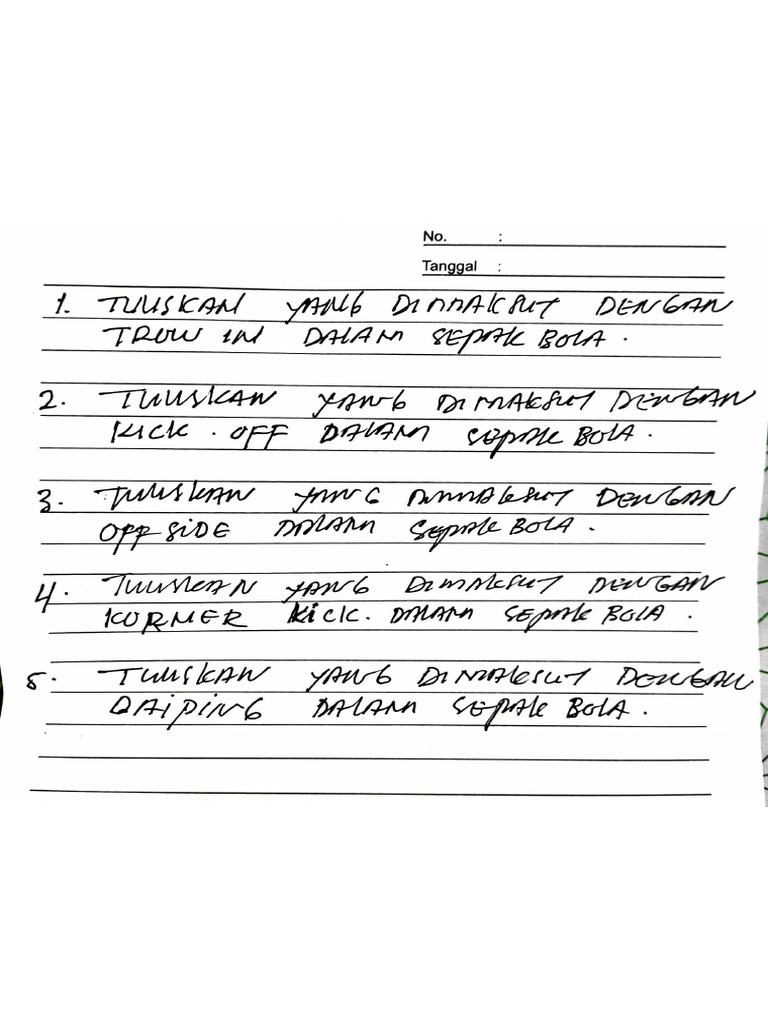 No. :
Tanggal :
1. TULISKAN YANG DIMAKSUT DENGAN
TROW IN DALAM SEPAK BOLA.
2. TULISKAN YANG DIMAKSUT DENGAN
KICK. OFF DALAM SEPAK BOLA.
3. TULISKAN YANG DIMAKSUT DENGAN
OFF SIDE DALAM SEPAK BOLA.
4. TULISKAN YANG DIMAKSUT DENGAN
KORNER KICK. DALAM SEPAK BOLA.
5. TULISKAN YANG DIMAKSUT DENGAN
DAIPING DALAM SEPAK BOLA.